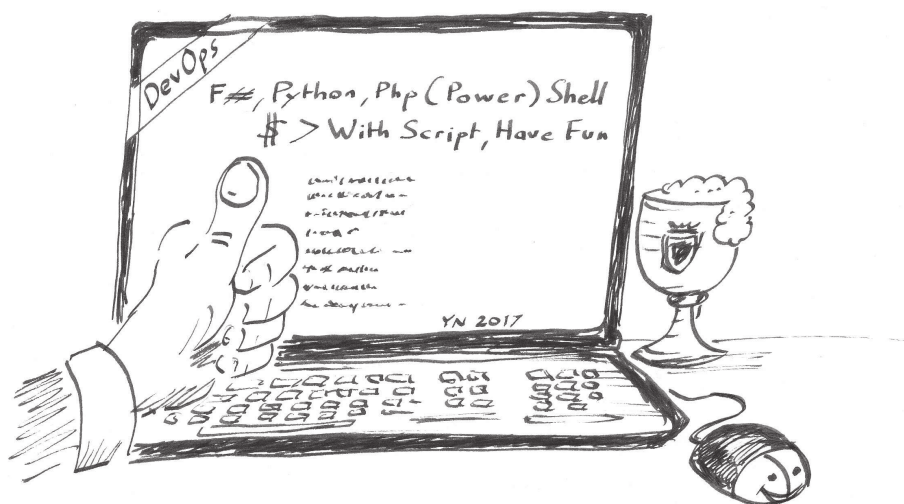 DevOps
F#, Python, Php (Power) Shell
$ > With Script, Have Fun
YN 2017